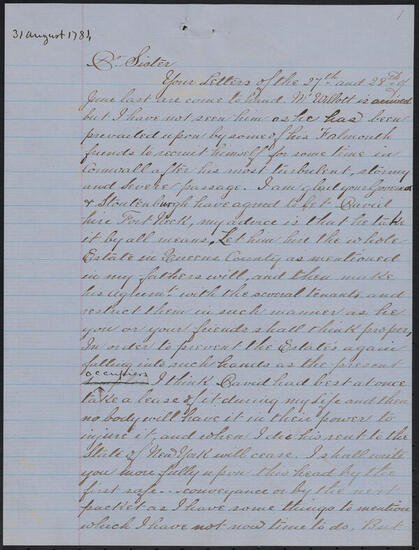 1
31 August 1784
Dr. Sister
Your Letters of the 27th and 28th of
June last are come to hand. Mr. is arrived
but I have not seen him as he has been
prevailed upon by some of his Falmouth
friends to recruit himself for some time in
Cornwall after his most turbulent, stormy
and severe passage. I am glad your Governor
& Stoutenburgh have agreed to let David
hire Fort Neck, my advice is that he take
it by all means. Let him hire the whole
Estate in Queens County as mentioned
in my fathers will, and then make
his agreemt. with the several tenants and
restrict them in such manner as he
you or your friends shall think proper,
In order to prevent the Estates again
falling into such hands as the present
occupiers
I think David had best at once
take a lease of it during my life and then
no body will have it in their power to
injure it, and when I die his rent to the
State of New York will cease. I shall write
you more fully upon this head by the
first safe conveyance or by the next
packet as I have some things to mention
which I have not now time to do. But